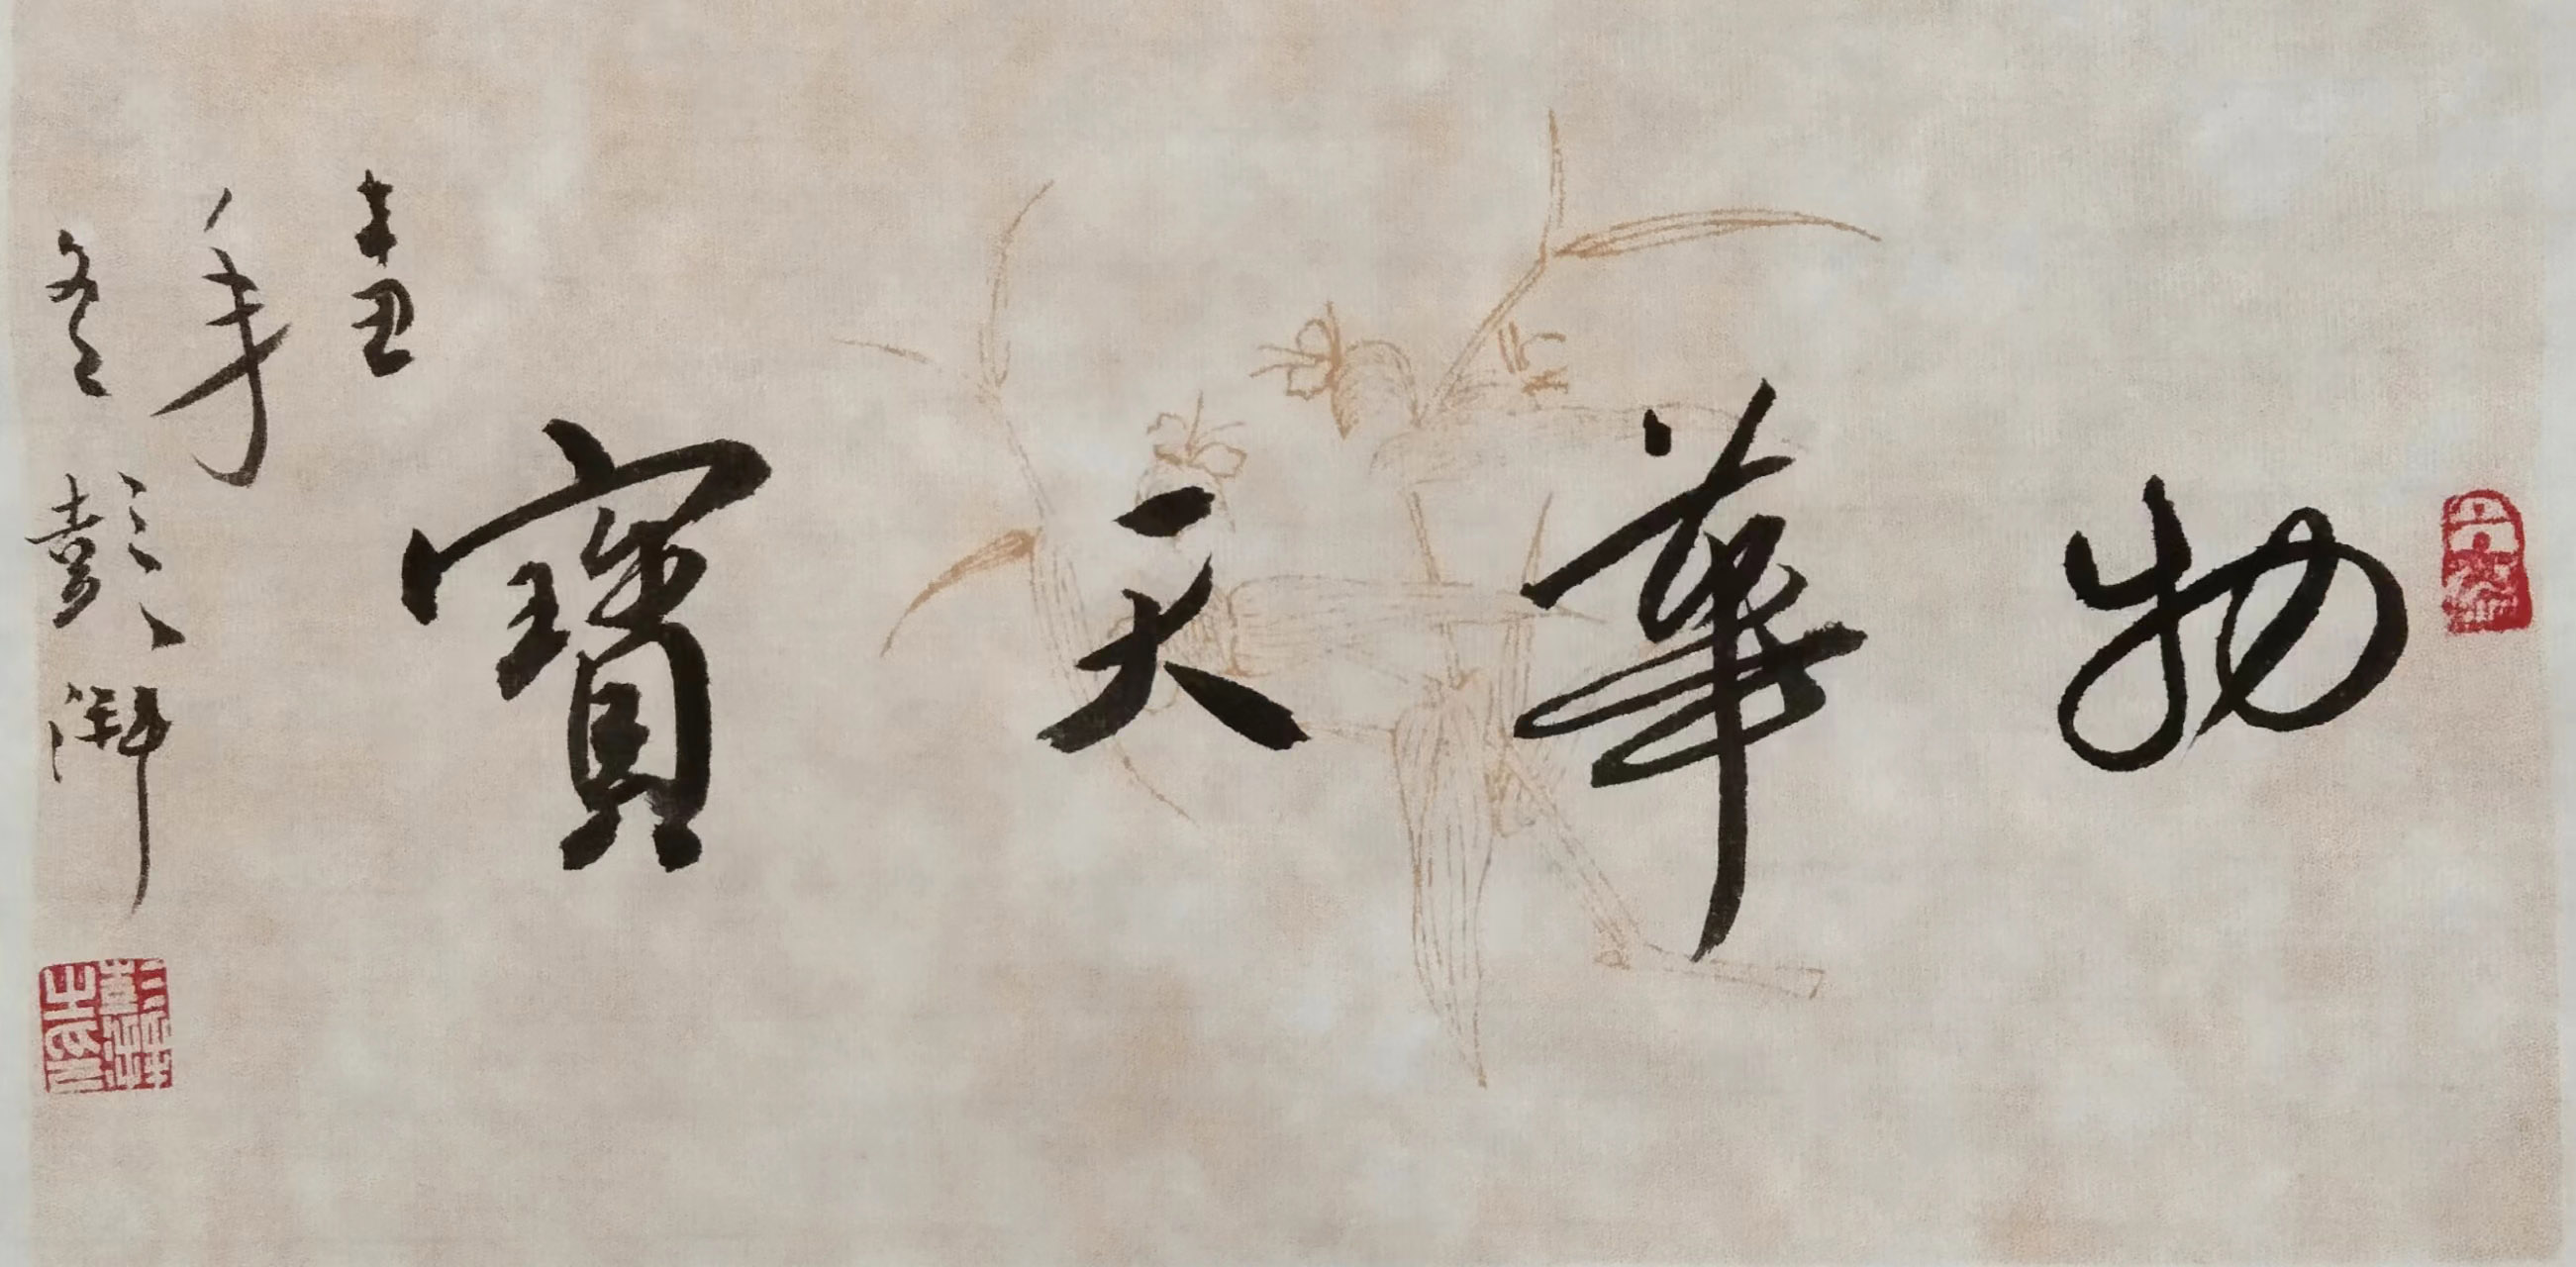 物華天寶
辛丑
年
冬 彭